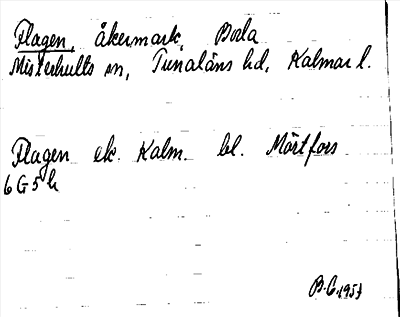 Flagen, åkermark, Boda
Misterhults sn, Tunaläns hd, Kalmar l.
Flagen ek. Kalm. bl. Mörtfors
6 G 5 h
B.G. 1957